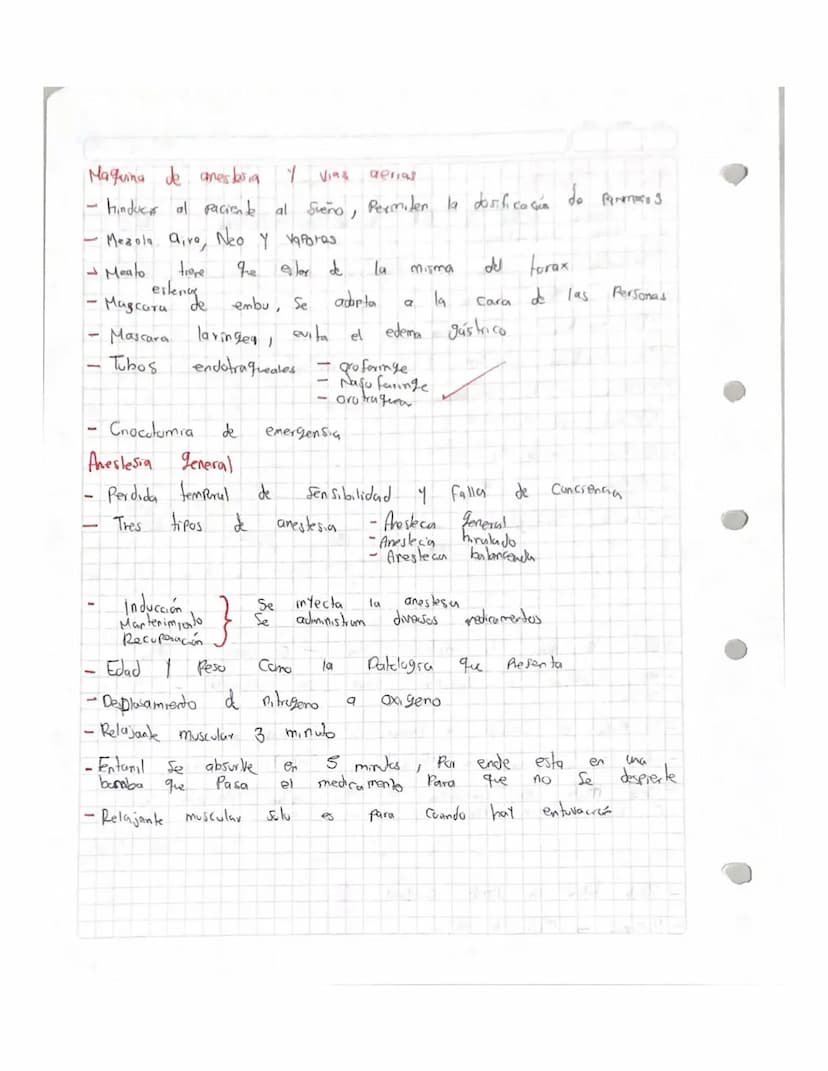 Maquina de anestesia y vias aerias
- hinducir al paciente al sueño, Permiten la dosificación de farmacos
- Mezcla aire, Neo y vapores
→ Meato tiene que estar de la misma del torax
esterno
- Mascara de embu, Se adapta a la cara de las Personas
- Mascara laringea, evita el edema gástrico
- Tubos endotraqueales - orofaringe
- Nasofaringe
- orotraquea
- Cricotomia de emergensia
Anestesia general
- Perdida temporal de sensibilidad y falla de conciencia
- Tres tipos de anestesia - Anesteca general
- Anestecia
- Anestecia balanceada
- Inducción } Se intecta la anestesia
Mantenimiento Se administran diversos medicamentos
Recuperación
- Edad y Peso Como la Patologia que Presenta
- Desplasamiento d nitrogeno a oxigeno
- Relajante muscular 3 minuto
- Fentanil Se absorve en 5 minutos, Por ende esta en una
bomba que Pasa el medicamento Para que no Se despierte
- Relajante muscular solo es para cuando hay